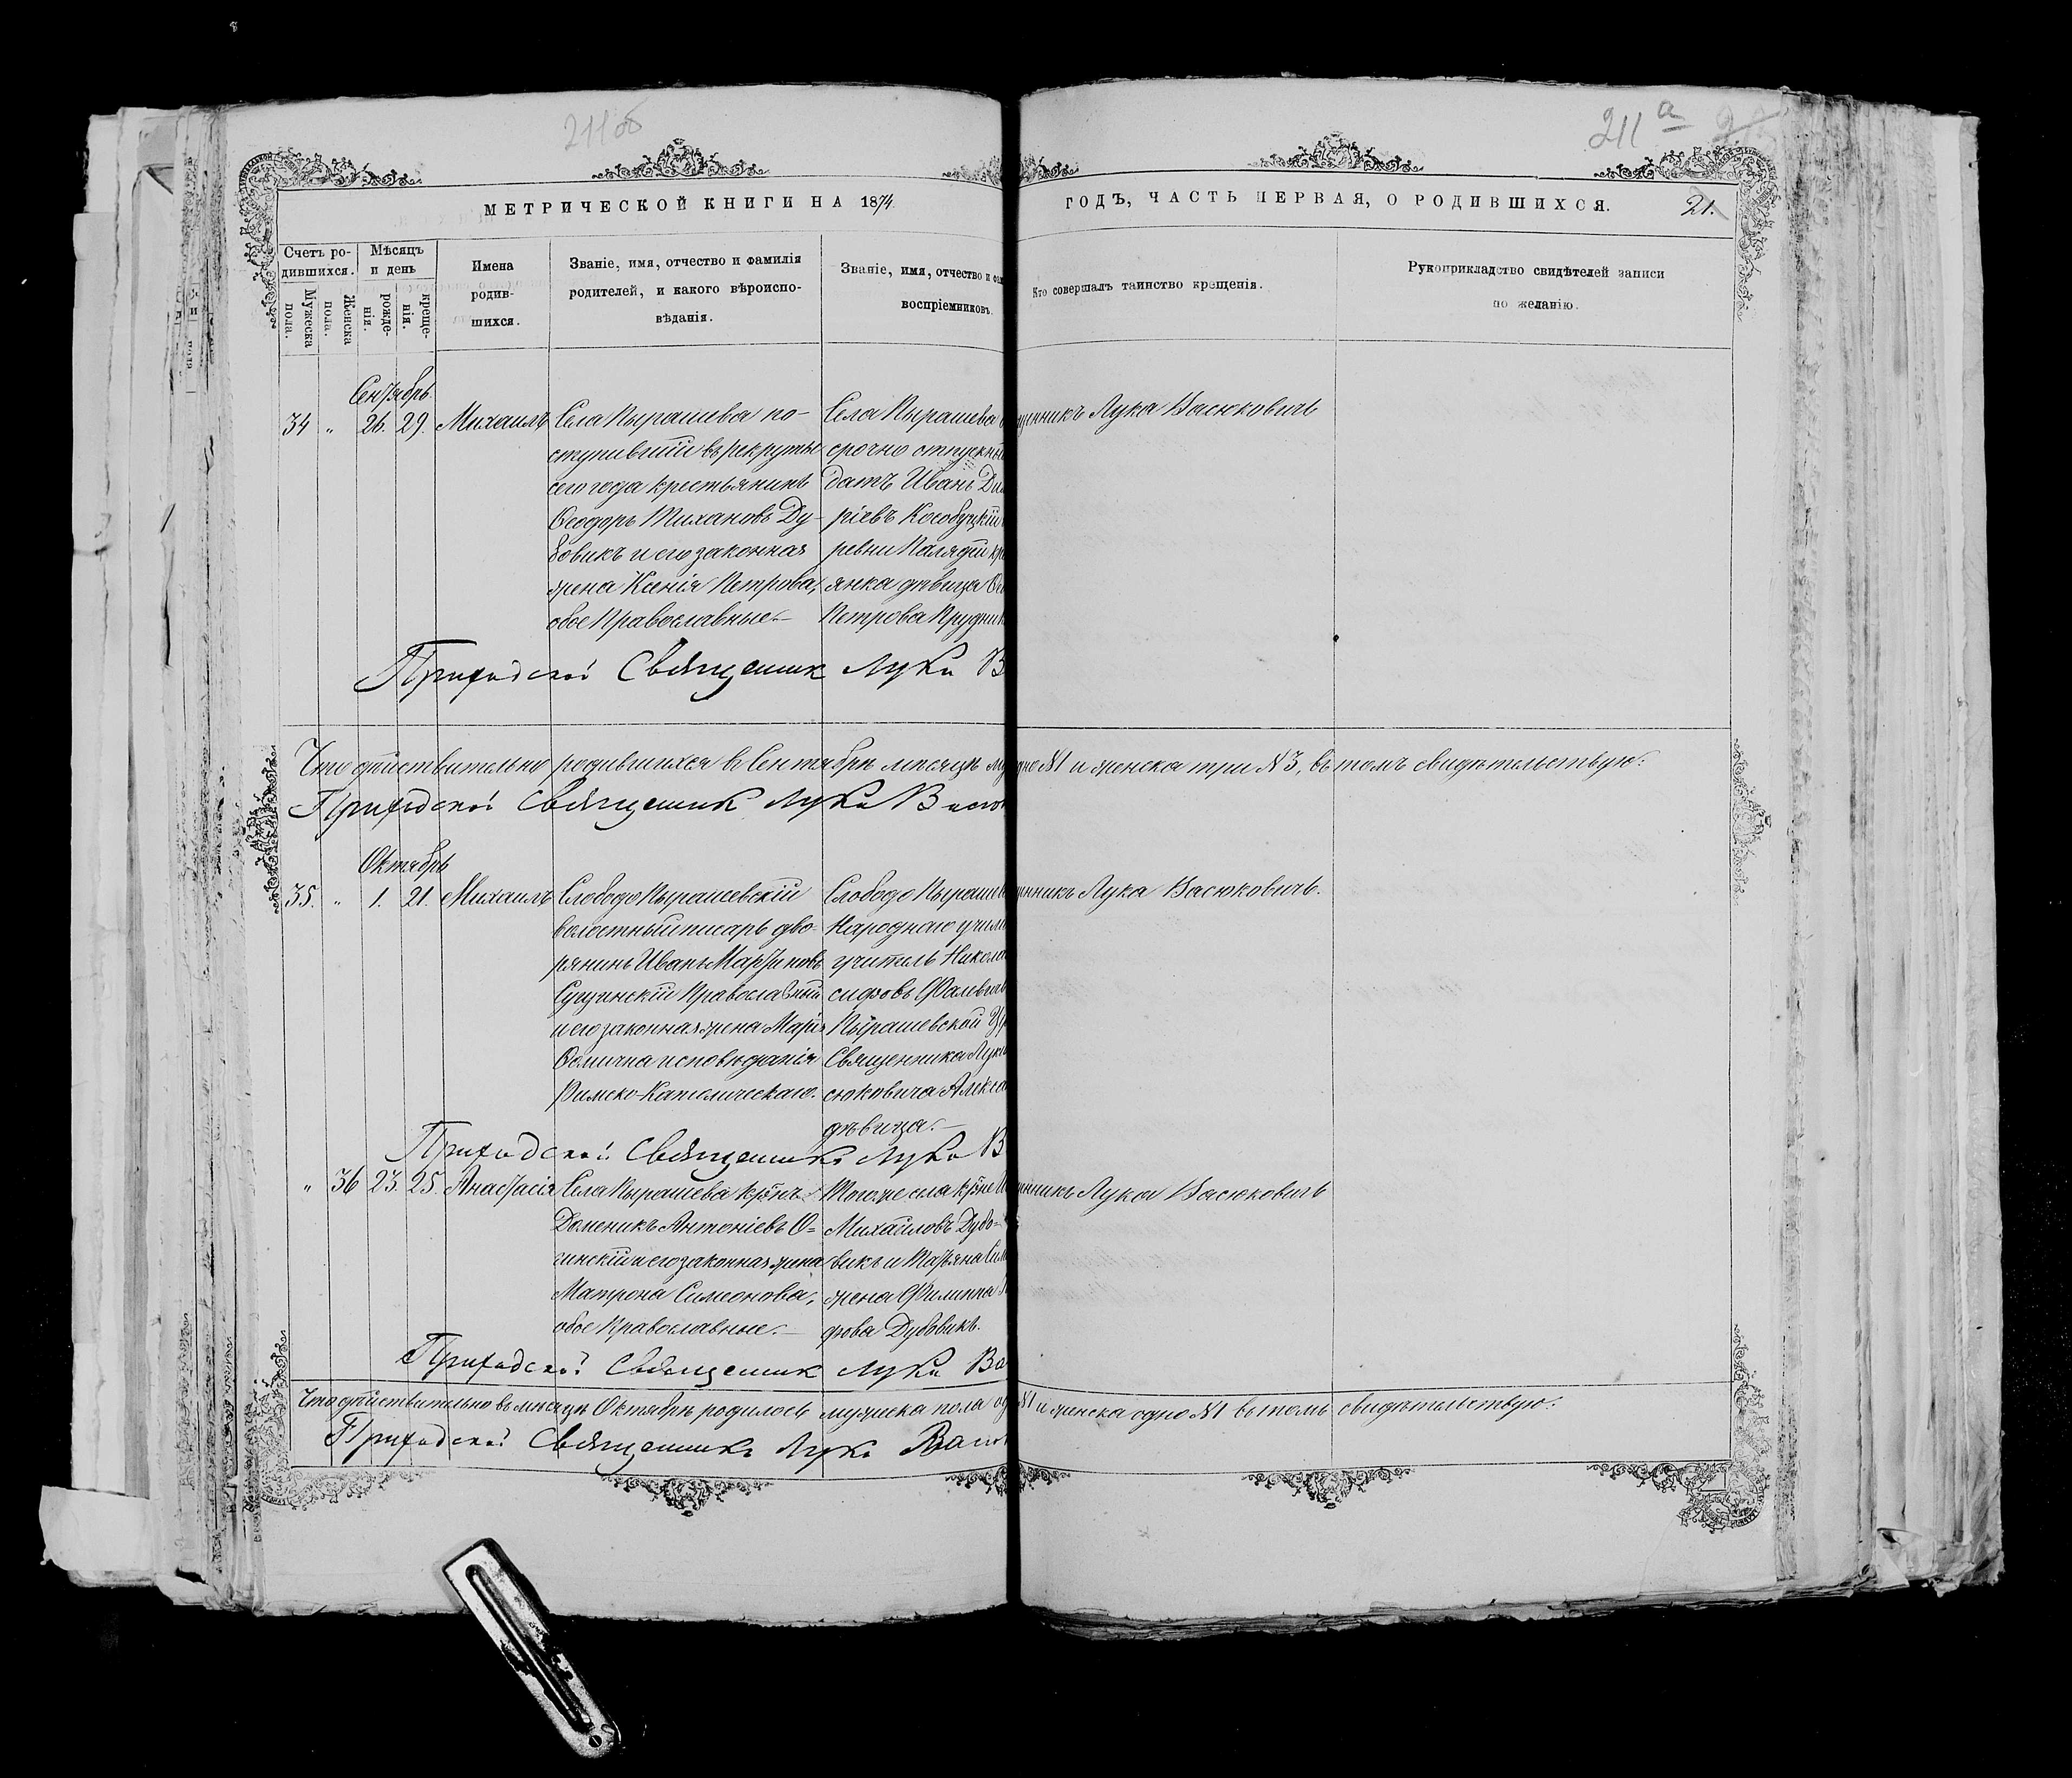 211об
211 а
МЕТРИЧЕСКОЙ КНИГИ НА 1874 ГОДЪ, ЧАСТЬ ПЕРВАЯ, О РОДИВШИХСЯ. 21.
Счетъ ро-
дившихся.
Мужеска
пола.
Женска
пола.
Мѣсяцъ
и день
рожде-
нія.
креще-
нія.
Имена
родив-
шихся.
Званіе, имя, отчество и фамилія
родителей, и какого вѣроиспо-
вѣданія.
Званіе, имя, отчество и фам
воспріемниковъ.
Кто совершалъ таинство крещенія.
Рукоприкладство свидѣтелей записи
по желанію.
Сентябрь
34 " 26. 29. Михаилъ
Села Пырашева по-
ступившій въ рекруты
сего года крестьянинъ
Ѳеодоръ Тихановъ Ду-
бовикъ и его законная
жена Ксенія Петрова,
обое Православные.
Села Пырашева
срочно отпускны
датъ Иванъ Ди
ріевъ Кособуцкій
ревни Палядей кр
янка дѣвица
Петрова Прудни
щенникъ Лука Васюковичъ
Приходской Священник Лука В
Что дѣйствительно родившихся в Сентябрѣ мѣсяцѣ му дно №1 и женска три №3, въ томъ свидѣтельствую:
Приходской Священник Лука Васю
Октябрь
35. " 1. 21. Михаилъ
Слободо Пырашевскій
волостный писарь дво-
рянинъ Иванъ Мартиновъ
Сущинскій Православный
и его законная жена Марія
Ѳомична исповѣданія
Римско-Католическаго.
Слободо Пыраше
Народнаго учили
учитель Никола
сифовъ Фалевич
Пырашевской Ц
Священника Луки
сюковича Алекса
дѣвица.
щенникъ Лука Васюковичъ.
Приходской Священникъ Лука В
" 36 23. 25. Анастасія
Села Пырашева крѣнъ
Доменикъ Антоніевъ О-
гинскій и его законная жена
Матрона Симеонова,
обое Православные.
Тогоже села крѣне
Михайловъ Дубо-
викъ и Татьяна Сим
жена Филиппа
фова Дубовикъ.
щенникъ Лука Васюковичъ
Приходской Священник Лука Ва
Что дѣйствительно въ мѣсяцѣ Октябрѣ родилось мужеска пола од №1 и женска одно №1 въ томъ свидѣтельствую:
Приходской Священникъ Лука Васю